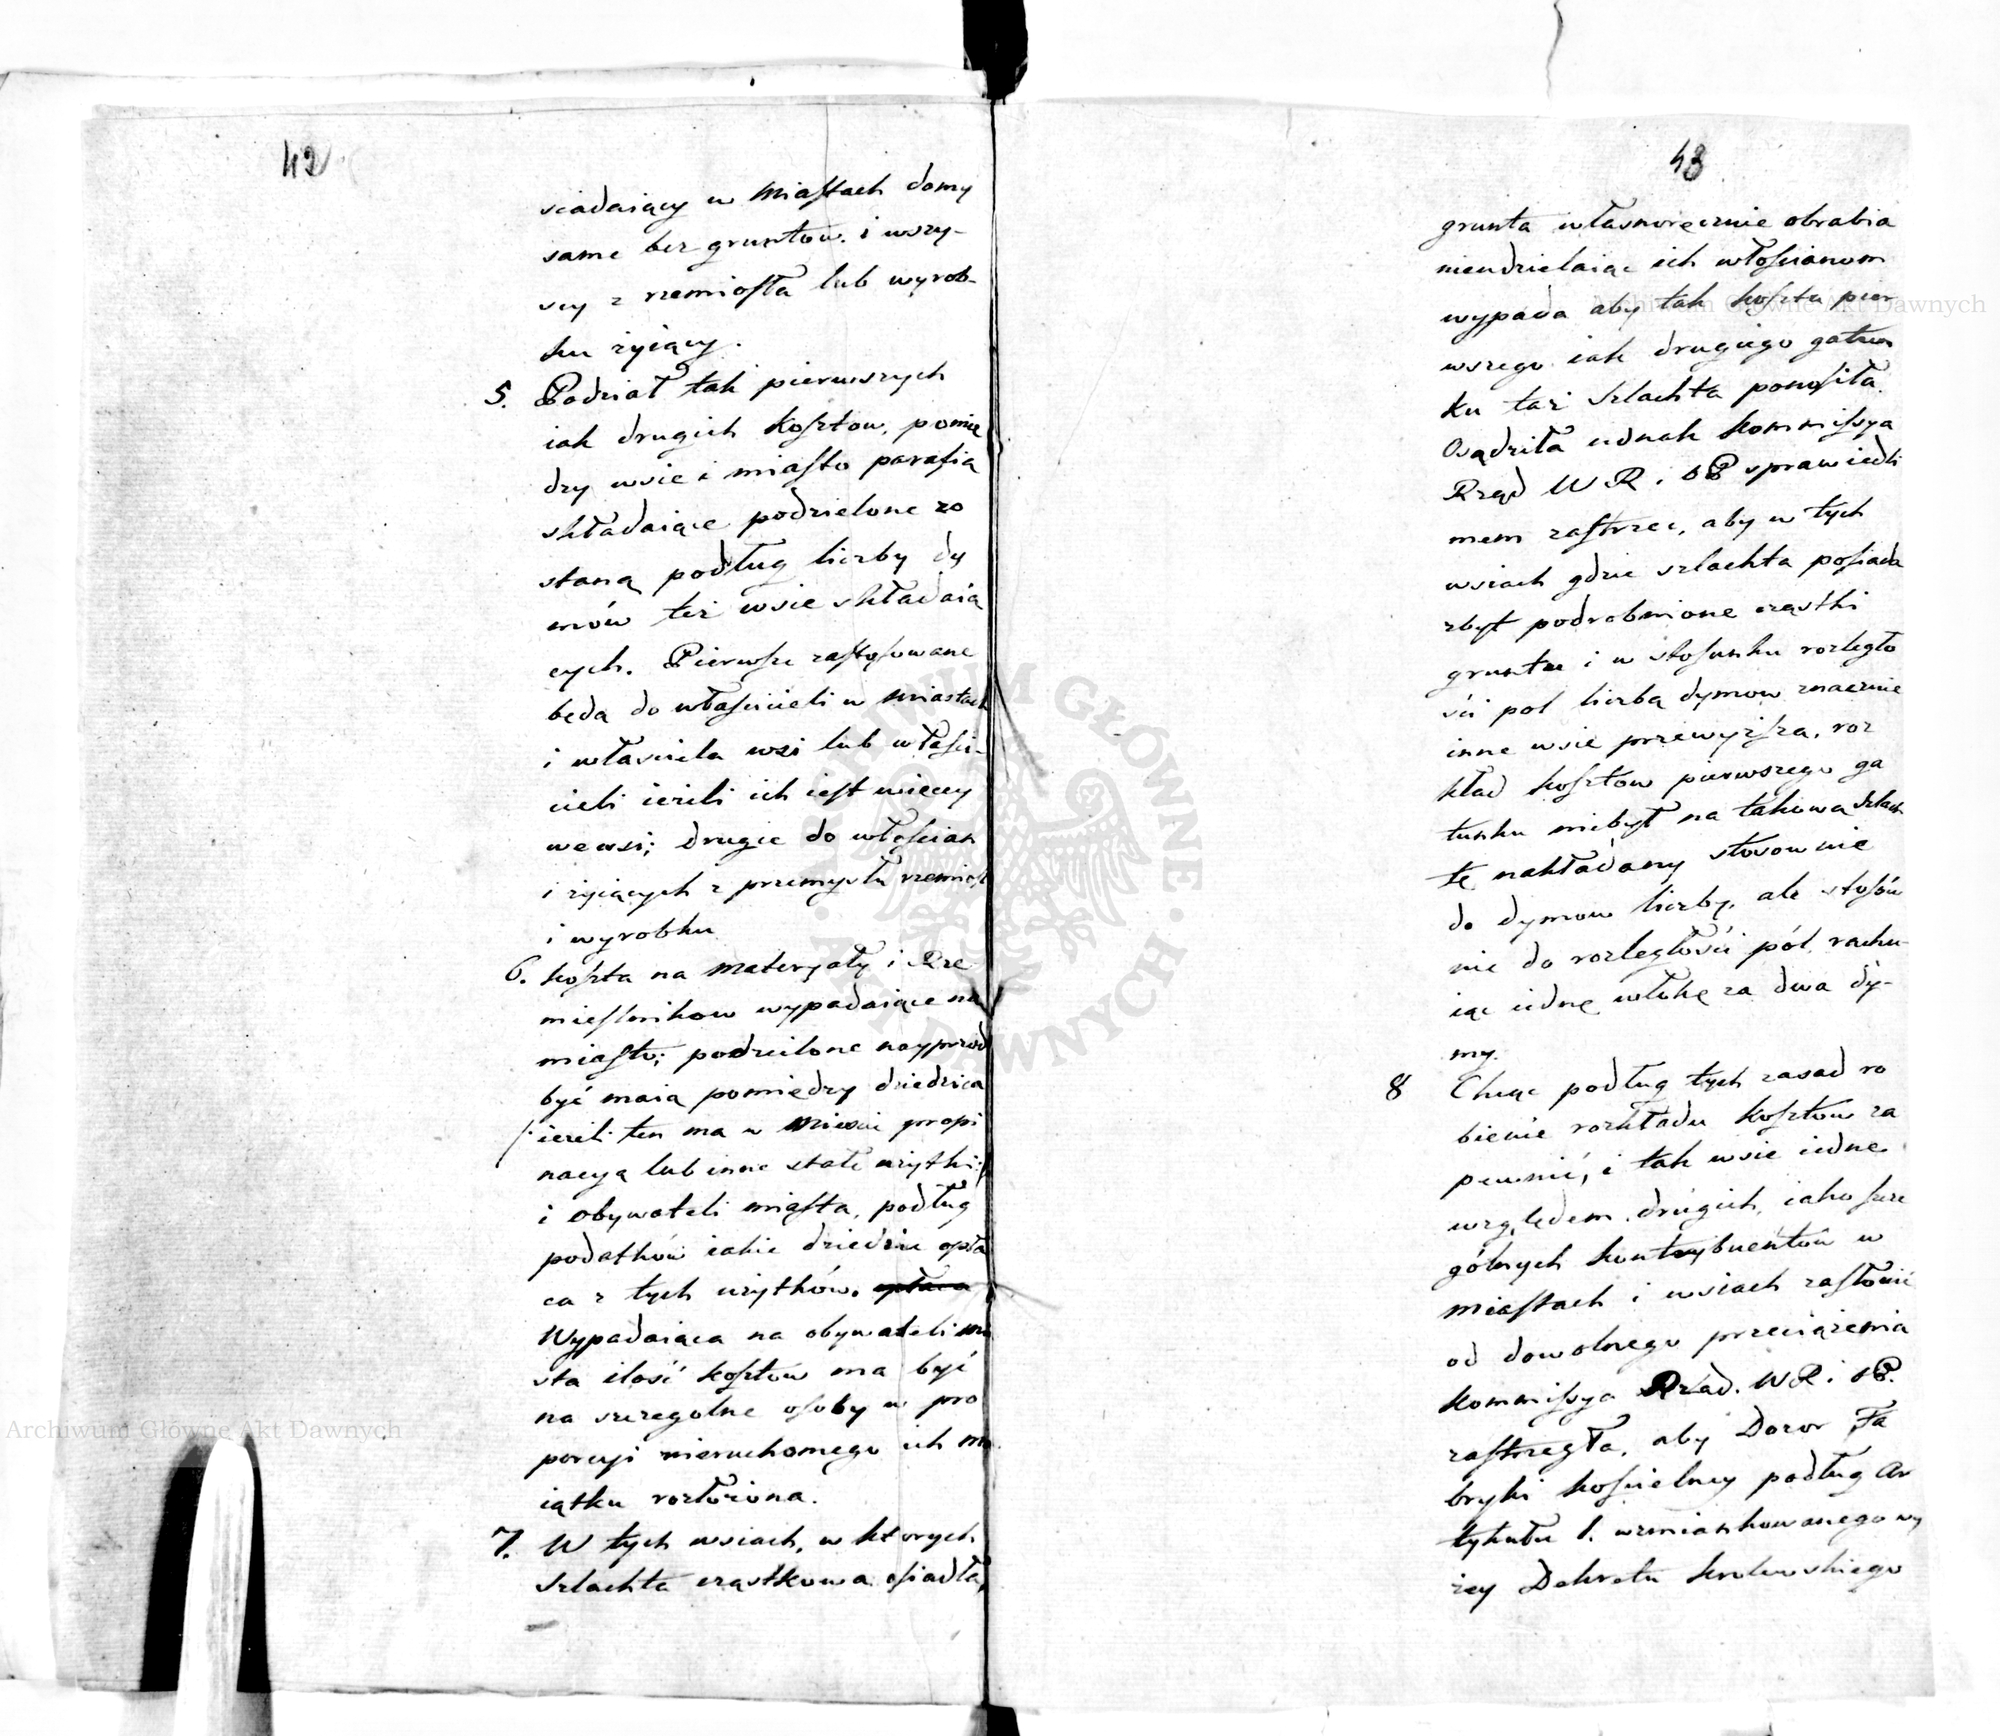 42
siadaiący w Miastach domy
same bez gruntow. i wszy-
scy z rzemiosła lub wyrob-
ku żyiący.
5. Podział tak pierwszych
iak drugich kosztow, pomię
dzy wsie i miasto parafią
składaiące podzielone zo
staną podług liczby dy
mów też wsie składaią
cych. Pierwsze zastosowane
będą do właścicieli w miastach
i właściciela wsi lub właści-
cieli ieżeli ich iest więcey
we wsi; drugie do włościan
i żyiących z przemysłu rzemiosł
i wyrobku
6. koszta na materyały i Rze
mieslnikow wypadaiące na
miasto; podzielone nayprzod
być maią pomiędzy dziedzica
/: ieżeli ten ma w Miescie propi
nacyą lub inne stałe użytki :/
i obywateli miasta, podług
podatków iakie dziedzic opła
ca z tych użytków. opłaca
Wypadaiąca na obywateli mia
sta ilość kosztow ma być
na szczegolne osoby w pro
porcyi nieruchomego ich ma
iątku rozłożona.
7. W tych wsiach, w ktorych
szlachta cząstkowa osiadła,
43
grunta własnoręcznie obrabia
nieudzielaiąc ich włościanom
wypada aby tak koszta pier
wszego iak drugiego gatun
ku taż szlachta ponosiła.
Osądziła iednak kommissya
Rząd W R. i OP sprawiedli
mem zastrzec, aby w tych
wsiach gdzie szlachta posiada
zbyt podrobnione cząstki
gruntu i w stosunku rozległo
ści pol liczbą dymow znacznie
inne wsie przewyższa, roz
kład kosztow pierwszego ga
tunku niebył na takową szlach
tę nakładany stosownie
do dymow liczby, ale stosow
nie do rozległości pól, rachu-
iąc iednę włokę za dwa dy-
my.
8 Chcąc podług tych zasad ro
bienie rozkładu kosztow za
pewnić, i tak wsie iedne
względem drugich, iako szcze
gólnych kontrybuentów w
miastach i wsiach zasłonić
od dowolnego przeciążenia
kommissya Rząd. W R. i OP.
zastrzegła, aby Dozor Fa
bryki kościelney podług Ar
tykułu 1. wzmiankowanego wy
żey Dekretu krolewskiego
Archiwum Główne Akt Dawnych
Archiwum Główne Akt Dawnych
ARCHIWUM GŁÓWNE · AKT DAWNYCH ·